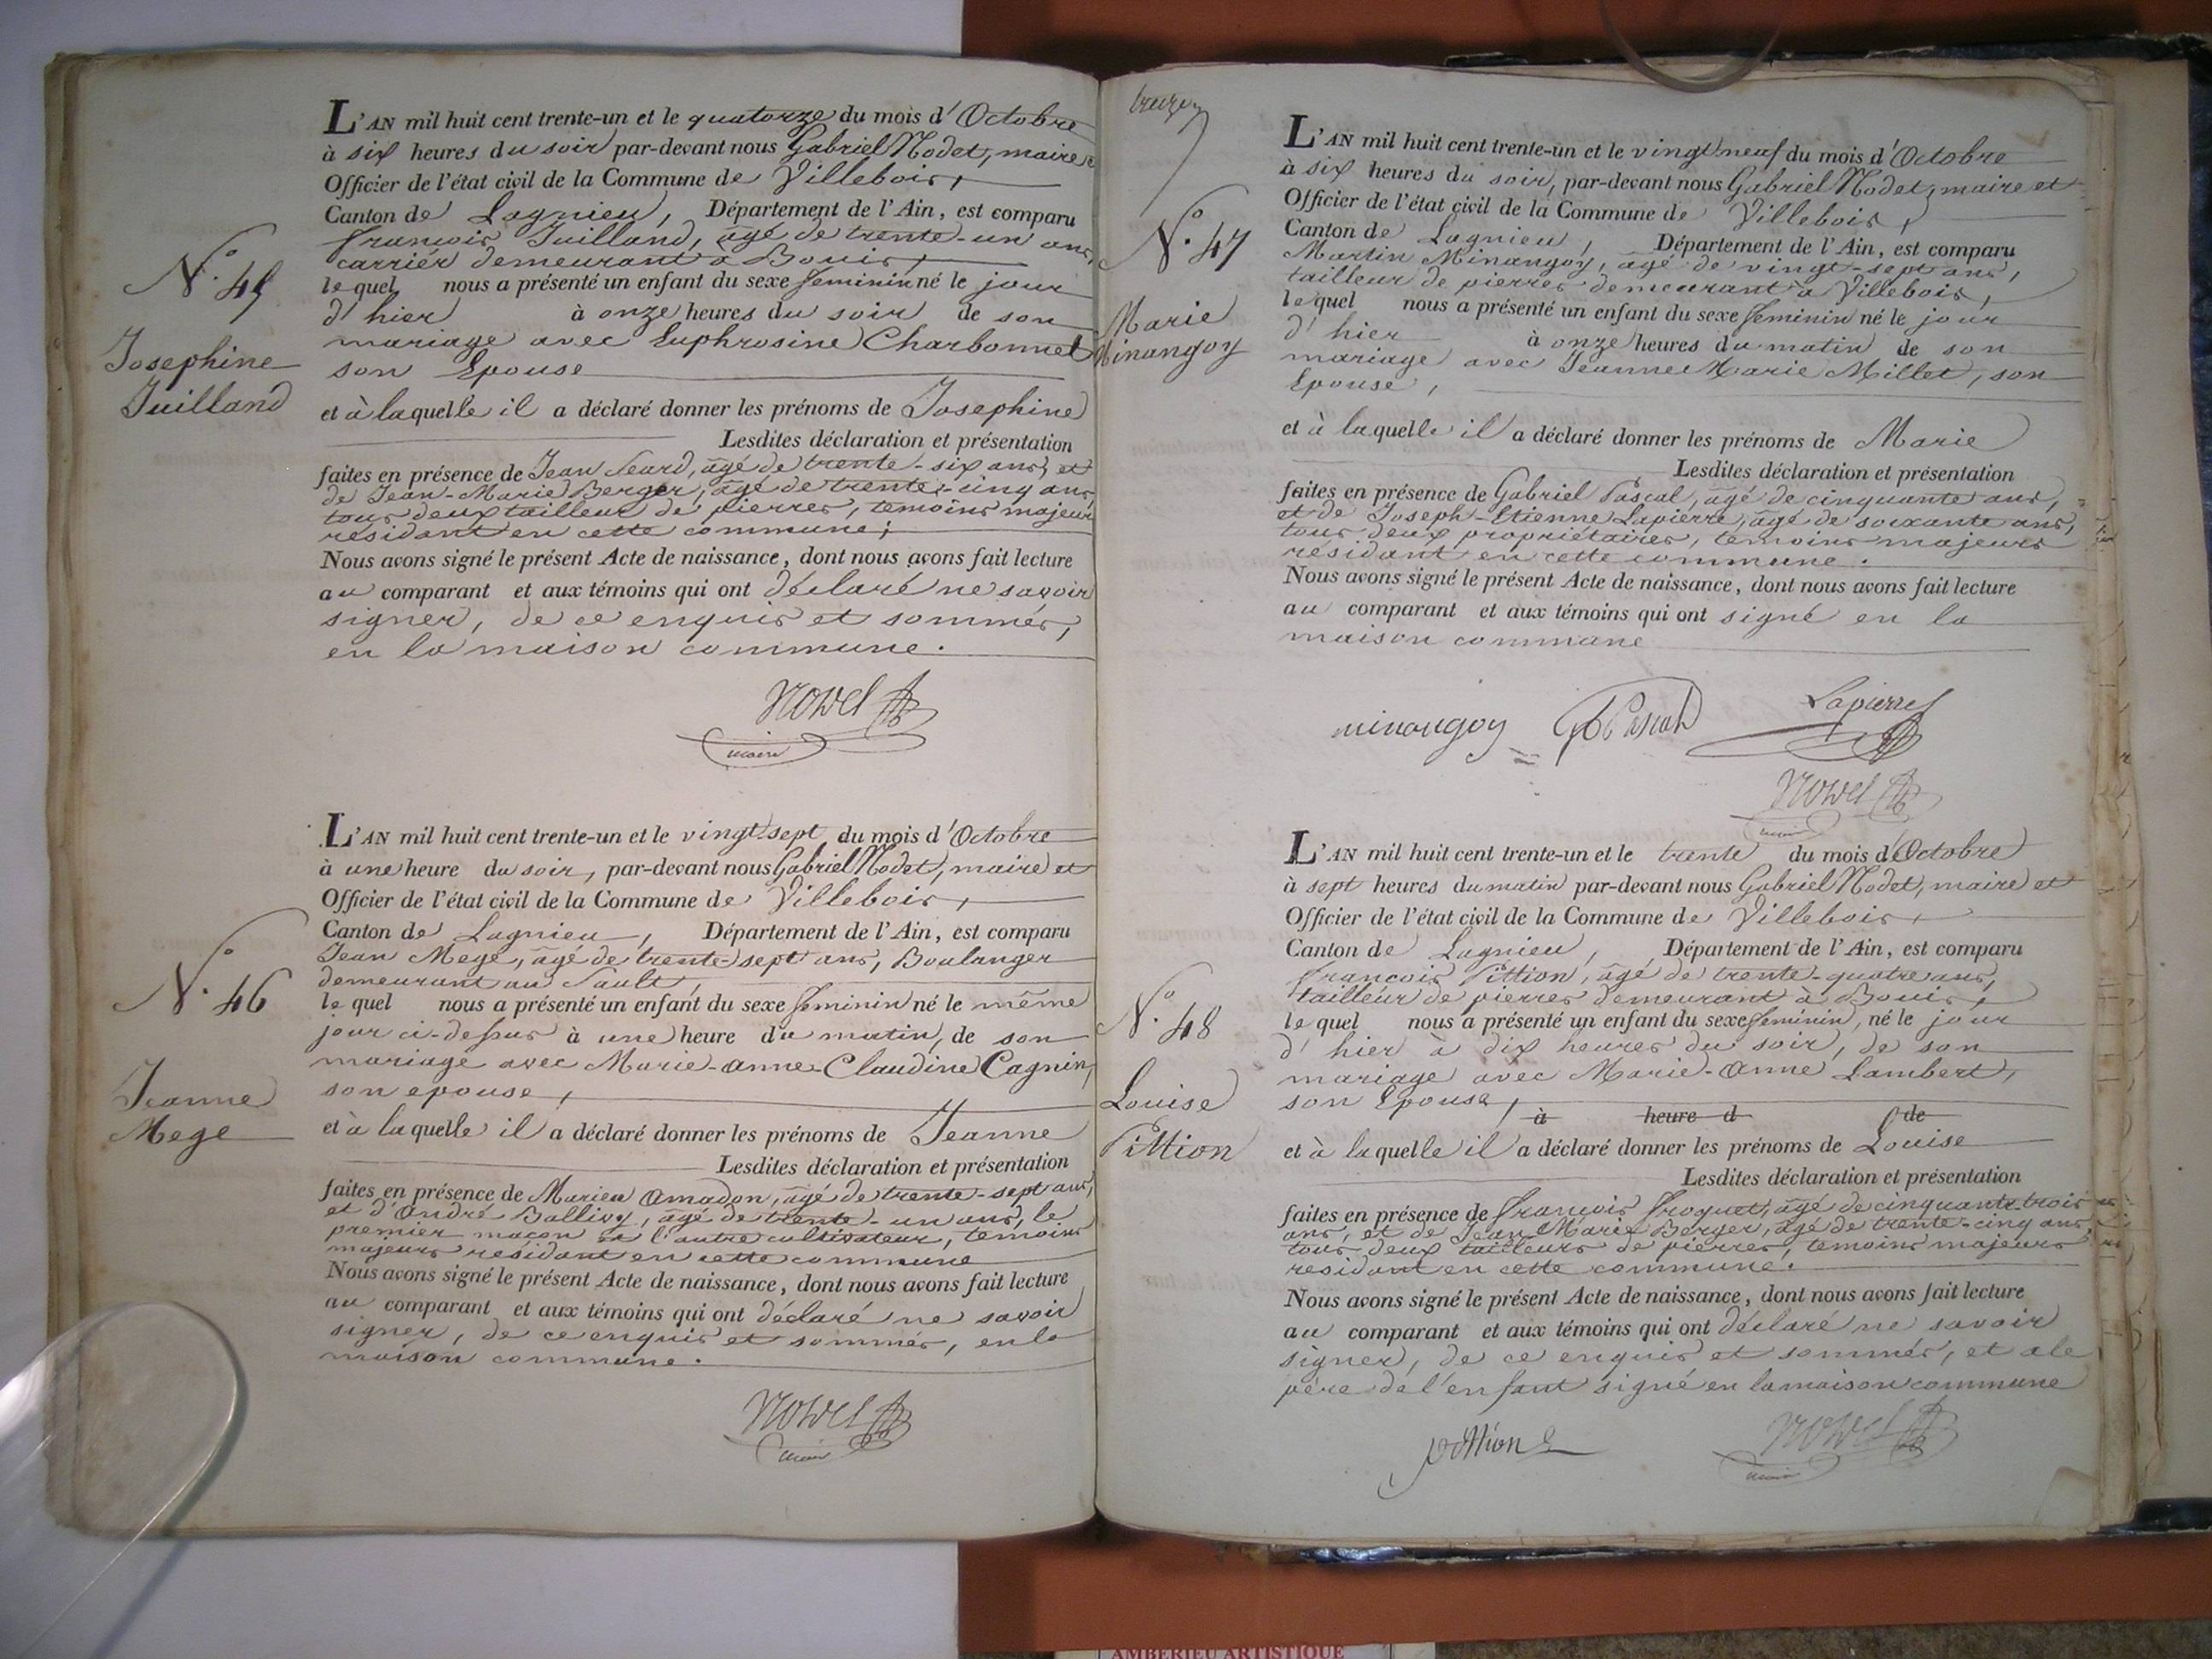 L'AN mil huit cent trente-un et le quatorze du mois d'Octobre
à six heures du soir par-devant nous Gabriel Nodet, maire et
Officier de l'état civil de la Commune de Villebois,
Canton de Lagnieu, Département de l'Ain, est comparu
François Juilland, âgé de trente-un ans,
carrier demeurant à Bouis,
N.° 45
le quel nous a présenté un enfant du sexe feminin né le jour
d'hier à onze heures du soir de son
mariage avec Euphrosine Charbonnet
Josephine
son Epouse
Juilland
et à laquelle il a déclaré donner les prénoms de Josephine
Lesdites déclaration et présentation
faites en présence de Jean Seard, âgé de trente-six ans, et
de Jean-Marie Berger, âgé de trente-cinq ans,
tous deux tailleur de pierres, temoins majeurs
résidant en cette commune;
Nous avons signé le présent Acte de naissance, dont nous avons fait lecture
au comparant et aux témoins qui ont déclaré ne savoir
signer, de ce enquis et sommés,
en la maison commune.
Nodet
maire
L'AN mil huit cent trente-un et le vingt-sept du mois d'Octobre
à une heure du soir, par-devant nous Gabriel Nodet, maire et
Officier de l'état civil de la Commune de Villebois,
Canton de Lagnieu, Département de l'Ain, est comparu
Jean Mege, âgé de trente-sept ans, Boulanger
demeurant au Sault,
N.° 46
le quel nous a présenté un enfant du sexe feminin né le même
jour ci-dessus à une heure du matin, de son
mariage avec Marie-anne-Claudine Cagnin,
son epouse,
Jeanne
Mege
et à laquelle il a déclaré donner les prénoms de Jeanne
Lesdites déclaration et présentation
faites en présence de Marieu Amadon, âgé de trente-sept ans,
et d'André Ballivy, âgé de trente-un ans, le
premier maçon et l'autre cultivateur, temoins
majeurs résidant en cette commune
Nous avons signé le présent Acte de naissance, dont nous avons fait lecture
au comparant et aux témoins qui ont déclaré ne savoir
signer, de ce enquis et sommés, en la
maison commune.
Nodet
maire
treize
L'AN mil huit cent trente-un et le vingt neuf du mois d'Octobre
à six heures du soir, par-devant nous Gabriel Nodet, maire et
Officier de l'état civil de la Commune de Villebois,
Canton de Lagnieu, Département de l'Ain, est comparu
N.° 47
Martin Minangoy, âgé de vingt-sept ans,
tailleur de pierres demeurant à Villebois,
le quel nous a présenté un enfant du sexe feminin né le jour
Marie
Minangoy
d'hier à onze heures du matin de son
mariage avec Jeanne Marie Millet, son
Epouse,
et à laquelle il a déclaré donner les prénoms de Marie
Lesdites déclaration et présentation
faites en présence de Gabriel Pascal, âgé de cinquante ans,
et de Joseph-Etienne Lapierre, âgé de soixante ans,
tous deux propriétaires, temoins majeurs
résidant en cette commune.
Nous avons signé le présent Acte de naissance, dont nous avons fait lecture
au comparant et aux témoins qui ont signé en la
maison commune
minangoy G Pascal Lapierre
Nodet
maire
L'AN mil huit cent trente-un et le trente du mois d'Octobre
à sept heures du matin par-devant nous Gabriel Nodet, maire et
Officier de l'état civil de la Commune de Villebois,
Canton de Lagnieu, Département de l'Ain, est comparu
François Pittion, âgé de trente-quatre ans,
tailleur de pierres demeurant à Bouis,
N.° 48
le quel nous a présenté un enfant du sexe feminin, né le jour
d'hier à dix heures du soir, de son
mariage avec Marie-Anne Lambert,
Louise
Pittion
son Epouse,
à heure d de
et à laquelle il a déclaré donner les prénoms de Louise
Lesdites déclaration et présentation
faites en présence de François Froquet, âgé de cinquante-trois
ans, et de Jean Marie Berger, âgé de trente-cinq ans,
tous deux tailleurs de pierres, temoins majeurs
résidant en cette commune.
Nous avons signé le présent Acte de naissance, dont nous avons fait lecture
au comparant et aux témoins qui ont déclaré ne savoir
signer, de ce enquis et sommés, et a le
père de l'enfant signé en la maison commune
pittion
Nodet
maire
AMBERIEU ARTISTIQUE